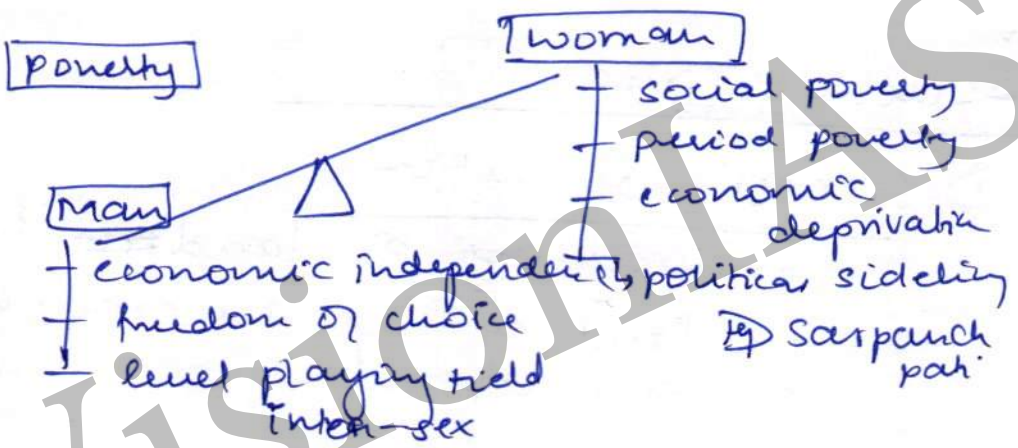 poverty
woman
social poverty
period poverty
economic
deprivation
political sideling
eg Sarpanch
pati
Man
economic independence
freedom of choice
level playing field
inter-sex
VisionIAS